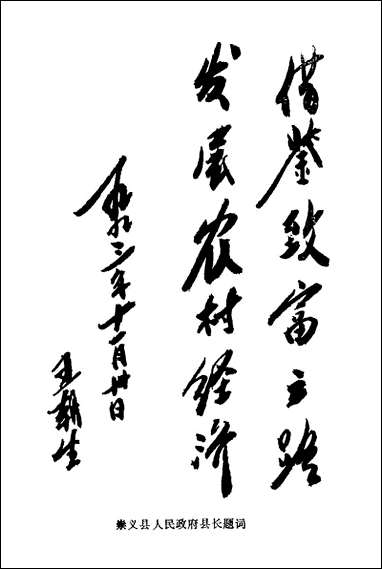 借鉴致富之路
发展农村经济
九三年十一月廿日
王朝生
崇义县人民政府县长题词